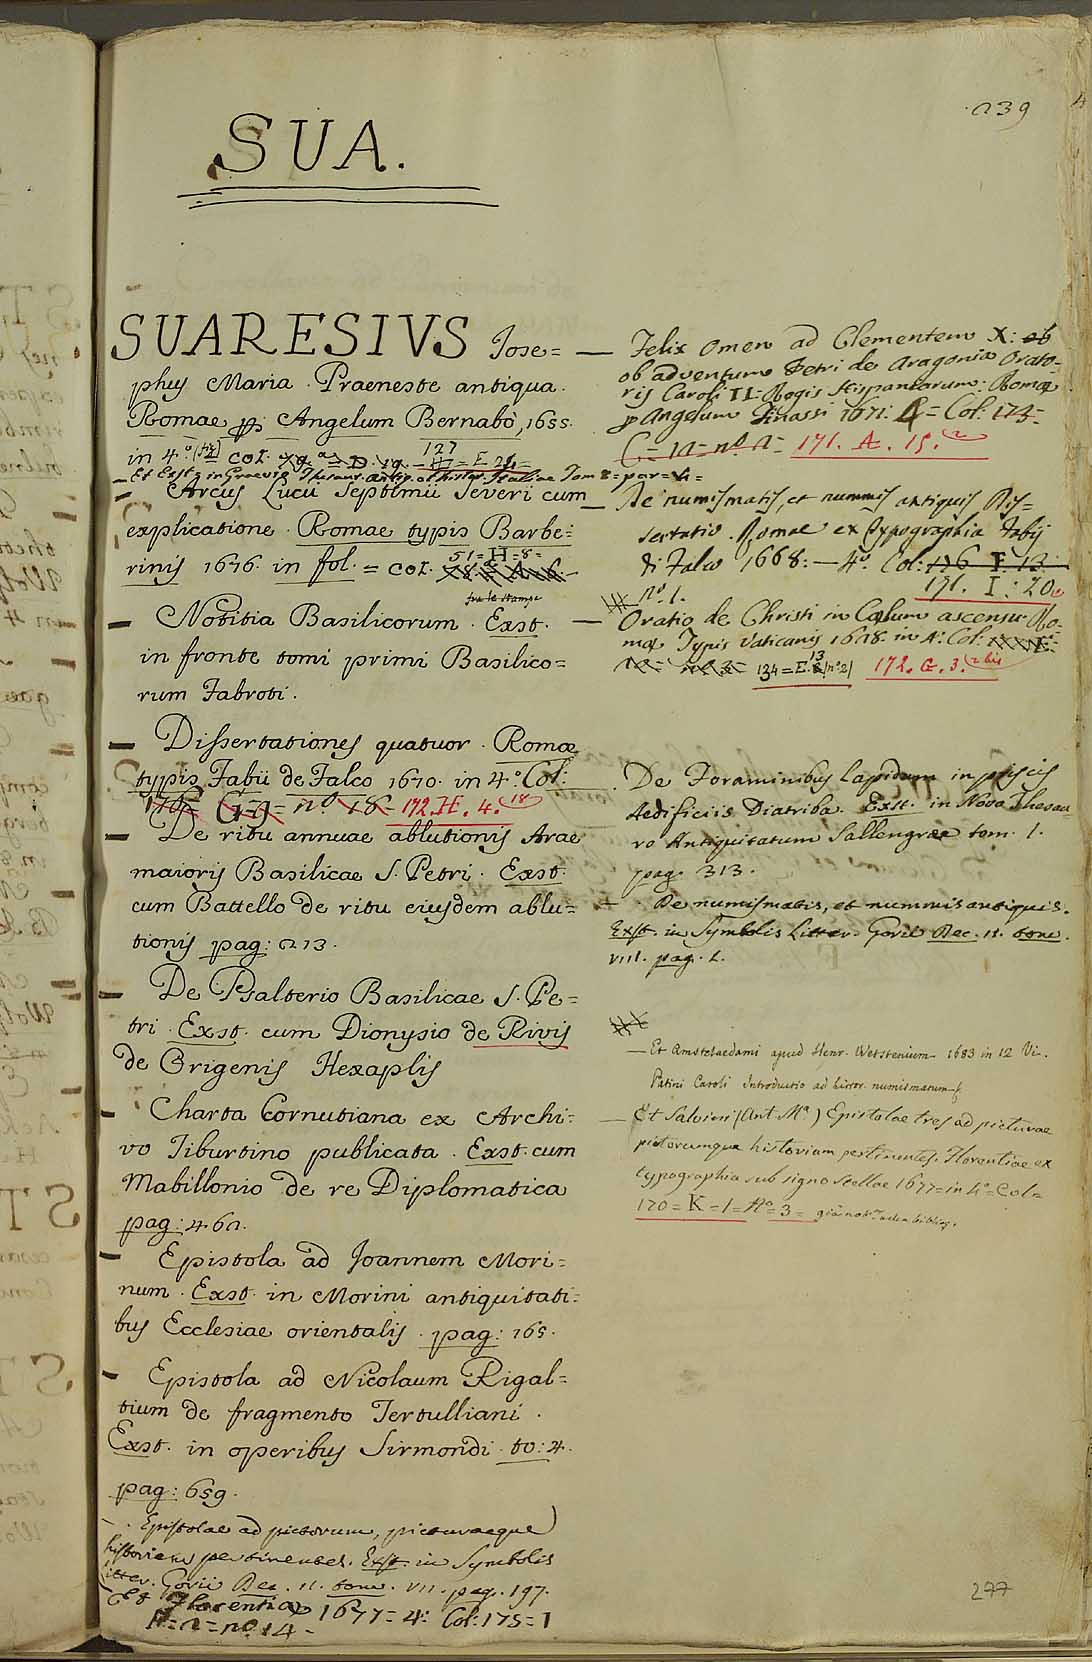 239
SUA.
SUARESIVS Jose=
phus Maria. Praeneste antiqua.
Romae p. Angelum Bernabò, 1655.
in 4.° Col.
127
= E. 21.
Et Exst. in Graevio Thesaur. antiq. et histor. Italiae Tom 8 = par = 4 =
— Arcus Lucii Septimii Severi cum
explicatione. Romae typis Barbe=
rinis 1676. in fol. = Col.
51 = H = 8 =
fra le stampe
— Notitia Basilicorum. Exst.
in fronte tomi primi Basilico=
rum Fabroti.
— Dissertationes quatuor. Romae
typis Fabii de Falco 1670. in 4.° Col:
172. H. 4. 18
— De ritu annuae ablutionis Arae
maioris Basilicae S. Petri. Exst.
cum Battello de ritu eiusdem ablu=
tionis pag: 213.
— De Psalterio Basilicae S. Pe=
tri. Exst. cum Dionysio de Rivis
de Origenis Hexaplis
— Charta Cornutiana ex Archi=
vo Tiburtino publicata. Exst. cum
Mabillonio de re Diplomatica
pag: 462.
— Epistola ad Joannem Mori=
num. Exst. in Morini antiquitati=
bus Ecclesiae orientalis. pag: 165.
— Epistola ad Nicolaum Rigal=
tium de fragmento Tertulliani.
Exst. in operibus Sirmondi. to: 4.
pag: 659.
— Epistolae ad pictorum, picturaeque
historiam pertinentes. Exst. in Symbolis
litter. Gorii Dec. II. tom. VII. pag. 197.
— Et Florentiae 1677 = 4: Col: 175 = I
= 2 = n° 14 -
— Felix Omen ad Clementem X: ob
ob adventum Petri de Aragonia Orato-
ris Caroli II. Regis Hispaniarum. Romae
p Angelum Tinassi 1671: 4 = Col: 173 =
C = 2 = n° 2 = 171. A. 15. 2
— De numismatis, et nummis antiquis Dis=
sertatio. Romae ex typographia Fabij
di Falco 1668: — 4° Col: 176 F. 13.
n° 1. 171. I: 20
— Oratio de Christi in Coelum ascensu Ro-
mae Typis Vaticanis 1628 in 4: Col.
134 = E. 13 (n° 2) 172. G. 3. 2 bis
De Foraminibus lapidum in priscis
Aedificiis Diatriba. Exst. in Nova Thesau
ro Antiquitatum Sallengrae tom. 1.
pag. 313.
— De numismatis, et nummis antiquis.
Exst. in Symbolis Litter. Gorii Dec. II. tom.
VIII. pag. 1.
— Et Amstelaedami apud Henr. Wetstenium 1683 in 12 Vi.
Patini Caroli Introductio ad histor. numismatum
— Et Salvini (Ant. Mª.) Epistolae tres ad picturae
pictorumque historiam pertinentes. Florentiae ex
typographia sub signo stellae 1677 = in 4° = Col =
170 = K = 1 = n° = 3 =
277